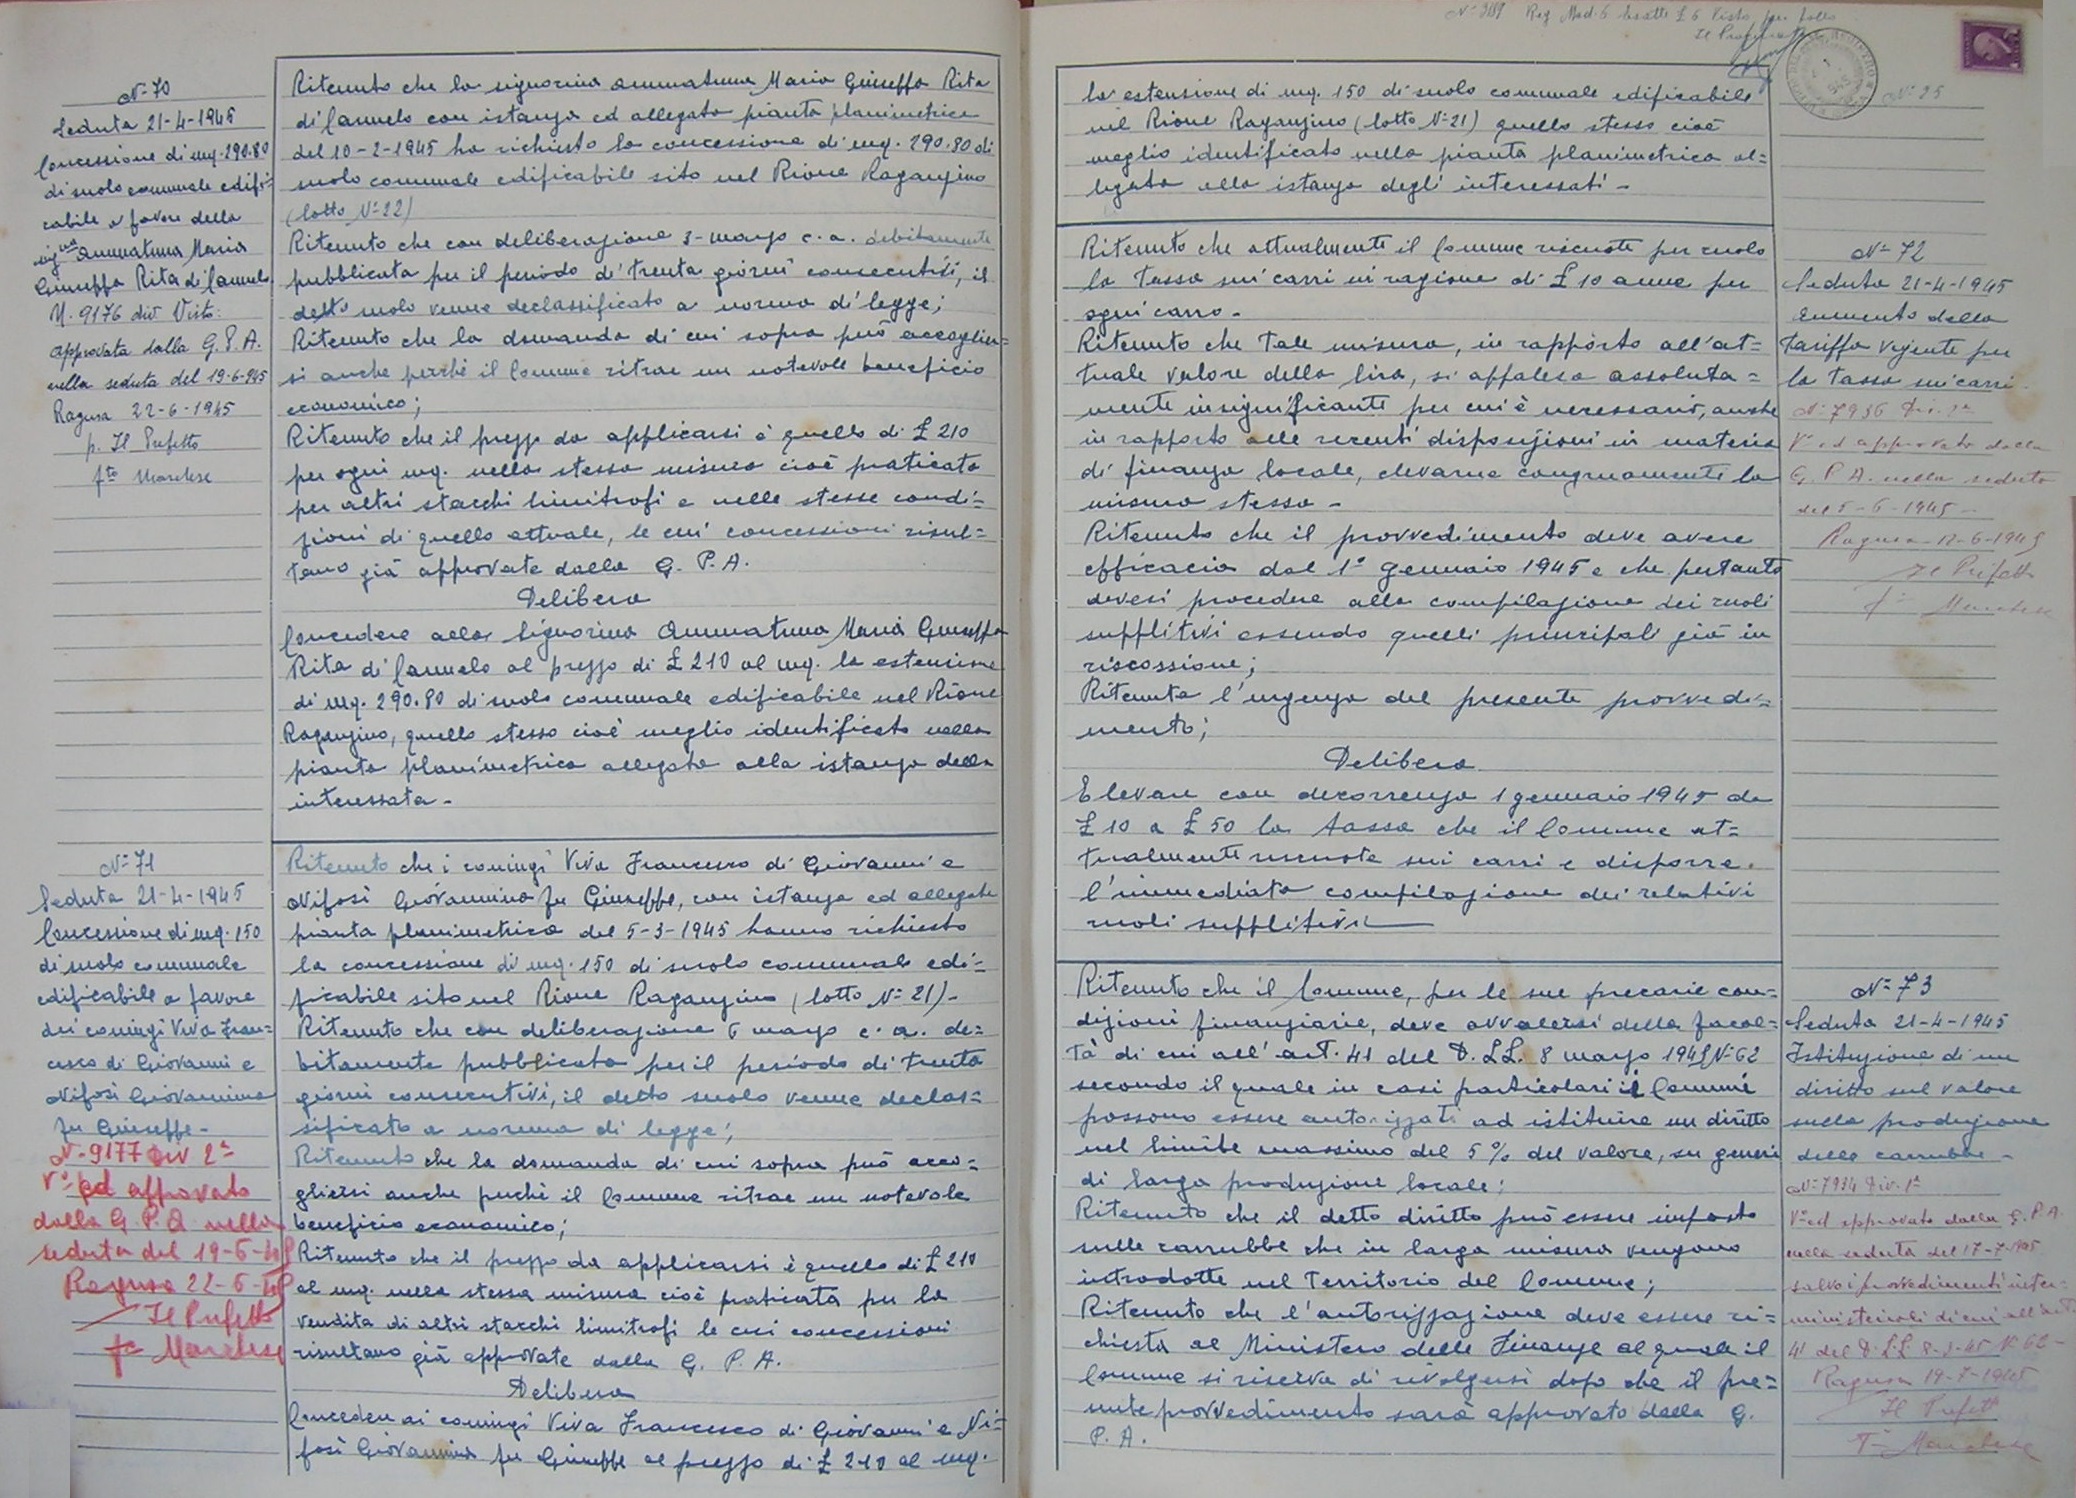 N= 70
Seduta 21-4-1945
Concessione di mq. 290.80
di suolo comunale edifi=
cabile a favore della
sig.na Ammatuna Maria
Giuseffa Rita di Carmelo
N. 9176 div Visto:
approvata dalla G. P. A.
nella seduta del 19-6-945
Ragusa 22-6-1945
p. Il Prefetto
fto Marchese
Ritenuto che la signorina Ammatuna Maria Giuseffa Rita
di Carmelo con istanza ed allegata pianta planimetrica
del 10-2-1945 ha richiesto la concessione di mq. 290.80 di
suolo comunale edificabile sito nel Rione Raganzino
(lotto N= 22)
Ritenuto che con deliberazione 3-marzo c.a. debitamente
pubblicata per il periodo di trenta giorni consecutivi, il
detto suolo venne declassificato a norma di legge;
Ritenuto che la domanda di cui sopra può accoglier=
si anche perchè il Comune ritrae un notevole beneficio
economico;
Ritenuto che il prezzo da applicarsi è quello di £ 210
per ogni mq. nella stessa misura cioè praticata
per altri stacchi limitrofi e nelle stesse condi=
zioni di quello attuale, le cui concessioni risul=
tano già approvate dalla G. P. A.
Delibera
Concedere alla Signorina Ammatuna Maria Giuseffa
Rita di Carmelo al prezzo di £ 210 al mq. la estensione
di mq. 290.80 di suolo comunale edificabile nel Rione
Raganzino, quello stesso cioè meglio identificato nella
pianta planimetrica allegata alla istanza della
interessata -
N= 71
Seduta 21-4-1945
Concessione di mq. 150
di suolo comunale
edificabile a favore
dei coniugi Viva Fran=
cesco di Giovanni e
Nifosì Giovannina
fu Giuseffe -
N= 9177 Div 2a
Vo ed approvato
dalla G. P. A. nella
seduta del 19-6-45
Ragusa 22-6-45
Il Prefetto
fo Marchese
Ritenuto che i coniugi Viva Francesco di Giovanni e
Nifosì Giovannina fu Giuseffe, con istanza ed allegata
pianta planimetrica del 5-3-1945 hanno richiesto
la concessione di mq. 150 di suolo comunale edi=
ficabile sito nel Rione Raganzino (lotto N= 21) -
Ritenuto che con deliberazione 6 marzo c.a. de=
bitamente pubblicata per il periodo di trenta
giorni consecutivi, il detto suolo venne declas=
sificato a norma di legge;
Ritenuto che la domanda di cui sopra può acco=
gliersi anche perchè il Comune ritrae un notevole
beneficio economico;
Ritenuto che il prezzo da applicarsi è quello di £ 210
al mq. nella stessa misura cioè praticata per la
vendita di altri stacchi limitrofi le cui concessioni
risultano già approvate dalla G. P. A.
Delibera
Concedere ai coniugi Viva Francesco di Giovanni e Ni=
fosì Giovannina fu Giuseffe al prezzo di £ 210 al mq.
Reg Mod. 6 Esatte £ 6 Visto per bollo
Il Procuratore
N= 25
la estensione di mq. 150 di suolo comunale edificabile
nel Rione Raganzino (lotto N= 21) quello stesso cioè
meglio identificato nella pianta planimetrica al=
legata alla istanza degli interessati -
Ritenuto che attualmente il Comune riscuote per ruolo
la tassa sui carri in ragione di £ 10 annue per
ogni carro -
Ritenuto che tale misura, in rapporto all'at=
tuale valore della lira, si appalesa assoluta=
mente insignificante per cui è necessario, anche
in rapporto alle recenti disposizioni in materia
di finanza locale, elevarne congruamente la
misura stessa -
Ritenuto che il provvedimento deve avere
efficacia dal 1° gennaio 1945 e che pertanto
devesi procedere alla compilazione dei ruoli
supplitivi essendo quelli principali già in
riscossione;
Ritenuta l'urgenza del presente provvedi=
mento;
Delibera
Elevare con decorrenza 1 gennaio 1945 da
£ 10 a £ 50 la tassa che il Comune at=
tualmente riscuote sui carri e disporre
l'immediata compilazione dei relativi
ruoli supplitivi
N= 72
Seduta 21-4-1945
Aumento della
tariffa vigente per
la tassa sui carri.
N= 7936 Div. 2a
Vo ed approvato dalla
G. P. A. nella seduta
del 5-6-1945 -
Ragusa 12-6-1945
Il Prefetto
fo Marchese
Ritenuto che il Comune, per le sue precarie con=
dizioni finanziarie, deve avvalersi della facol=
tà di cui all'art. 41 del D.LL. 8 marzo 1945 N= 62
secondo il quale in casi particolari i Comuni
possono essere autorizzati ad istituire un diritto
nel limite massimo del 5% del valore, su generi
di larga produzione locale;
Ritenuto che il detto diritto può essere imposto
sulle carrubbe che in larga misura vengono
introdotte nel Territorio del Comune;
Ritenuto che l'autorizzazione deve essere ri=
chiesta al Ministero delle Finanze al quale il
Comune si riserva di rivolgersi dopo che il pre=
sente provvedimento sarà approvato dalla G.
P. A.
N= 73
Seduta 21-4-1945
Istituzione di un
diritto sul valore
sulla produzione
delle carrubbe -
N= 7934 Div. 1a
Vo ed approvato dalla G. P. A.
nella seduta del 17-7-1945
salvo i provvedimenti inter=
ministeriali di cui all'art.
41 del D.L.L. 8-3-45 N= 62 -
Ragusa 19-7-1945
Il Prefetto
Fo Marchese